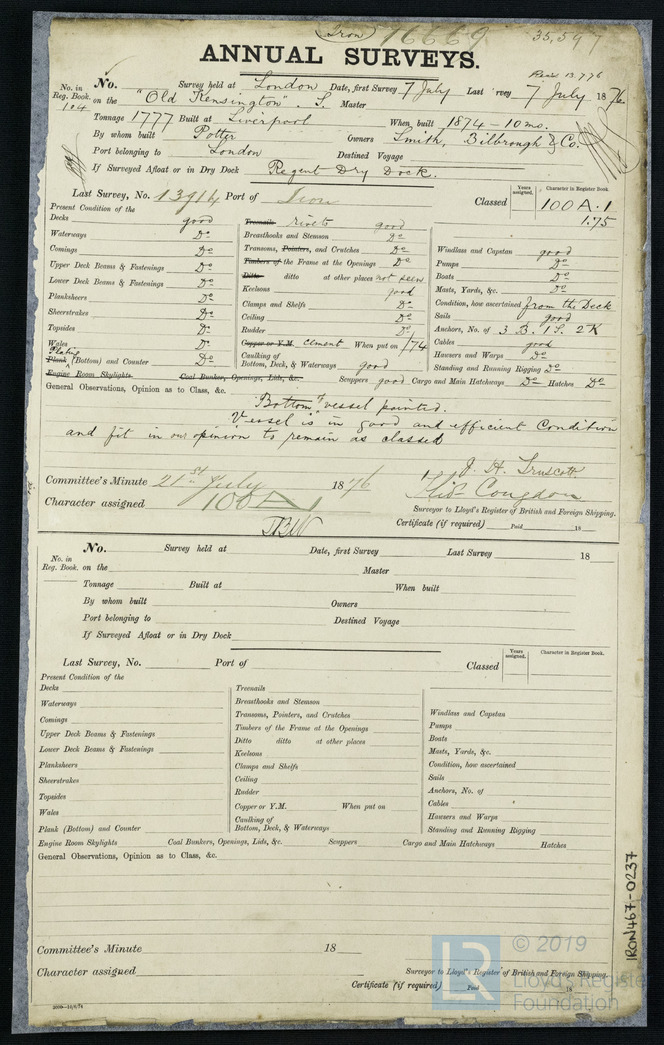 (Iron) 76669 35,597
ANNUAL SURVEYS.
Rec. 13.7.76
No. Survey held at London Date, first Survey 7 July Last Survey 7 July 1876
No. in Reg. Book. 104 on the "Old Kensington". S. Master
Tonnage 1777 Built at Liverpool When built 1874 - 10 mo.
By whom built Potter Owners Smith, Bilbrough & Co.
Port belonging to London Destined Voyage
If Surveyed Afloat or in Dry Dock Regent Dry Dock.
Last Survey, No. 13914 Port of Iron Classed
Years assigned. Character in Register Book
100 A.1
1.75
Present Condition of the
Decks good
Waterways Do
Comings Do
Upper Deck Beams & Fastenings Do
Lower Deck Beams & Fastenings Do
Planksheers Do
Sheerstrakes Do
Topsides Do
Wales Do
Plating
Plank (Bottom) and Counter Do
Engine Room Skylights. Coal Bunker, Openings, Lids, &c.
Treenails rivets good
Breasthooks and Stemson Do
Transoms, Pointers, and Crutches Do
Timbers of the Frame at the Openings Do
Ditto ditto at other places not seen
Keelsons good
Clamps and Shelfs Do
Ceiling Do
Rudder Do
Copper or Y.M. cement When put on /74
Caulking of
Bottom, Deck, & Waterways good
Windlass and Capstan good
Pumps Do
Boats Do
Masts, Yards, &c. Do
Condition, how ascertained from the Deck
Sails good
Anchors, No. of 3 B. 1 S. 2 K
Cables good
Hawsers and Warps Do
Standing and Running Rigging Do
Scuppers good Cargo and Main Hatchways Do Hatches Do
General Observations, Opinion as to Class, &c.
Bottom of vessel painted.
Vessel is in good and efficient Condition
and fit in our opinion to remain as classed
J. H. Truscott
Committee's Minute 21st July 1876
Congdon
Character assigned 100 A 1
Surveyor to Lloyd's Register of British and Foreign Shipping.
Certificate (if required) Paid 18
No. Survey held at Date, first Survey Last Survey 18
No. in Reg. Book. on the Master
Tonnage Built at When built
By whom built Owners
Port belonging to Destined Voyage
If Surveyed Afloat or in Dry Dock
Last Survey, No. Port of Classed
Years assigned. Character in Register Book.
Present Condition of the
Decks
Waterways
Comings
Upper Deck Beams & Fastenings
Lower Deck Beams & Fastenings
Planksheers
Sheerstrakes
Topsides
Wales
Plank (Bottom) and Counter
Treenails
Breasthooks and Stemson
Transoms, Pointers, and Crutches
Timbers of the Frame at the Openings
Ditto ditto at other places
Keelsons
Clamps and Shelfs
Ceiling
Rudder
Copper or Y.M. When put on
Caulking of
Bottom, Deck, & Waterways
Windlass and Capstan
Pumps
Boats
Masts, Yards, &c.
Condition, how ascertained
Sails
Anchors, No. of
Cables
Hawsers and Warps
Standing and Running Rigging
Engine Room Skylights Coal Bunkers, Openings, Lids, &c. Scuppers Cargo and Main Hatchways Hatches
General Observations, Opinion as to Class, &c.
Committee's Minute 18
Character assigned
Surveyor to Lloyd's Register of British and Foreign Shipping.
Certificate (if required) Paid 18
IRON467-0237
LR © 2019
Lloyd's Register
Foundation